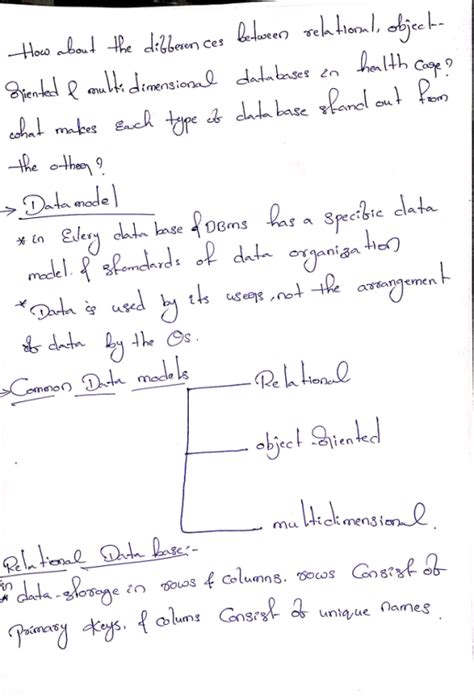 How about the differences between relational, object-
oriented & multidimensional databases in health care?
what makes each type of database stand out from
the other?
→ Data model
* in Every data base & DBMS has a specific data
model. & standards of data organization
* Data is used by its users, not the arrangement
of data by the Os.
→ Common Data models
Relational
object-oriented
multidimensional.
Relational Data base:-
in
* data-storage in rows & columns. rows Consist of
Primary keys. & colums Consist of unique names.